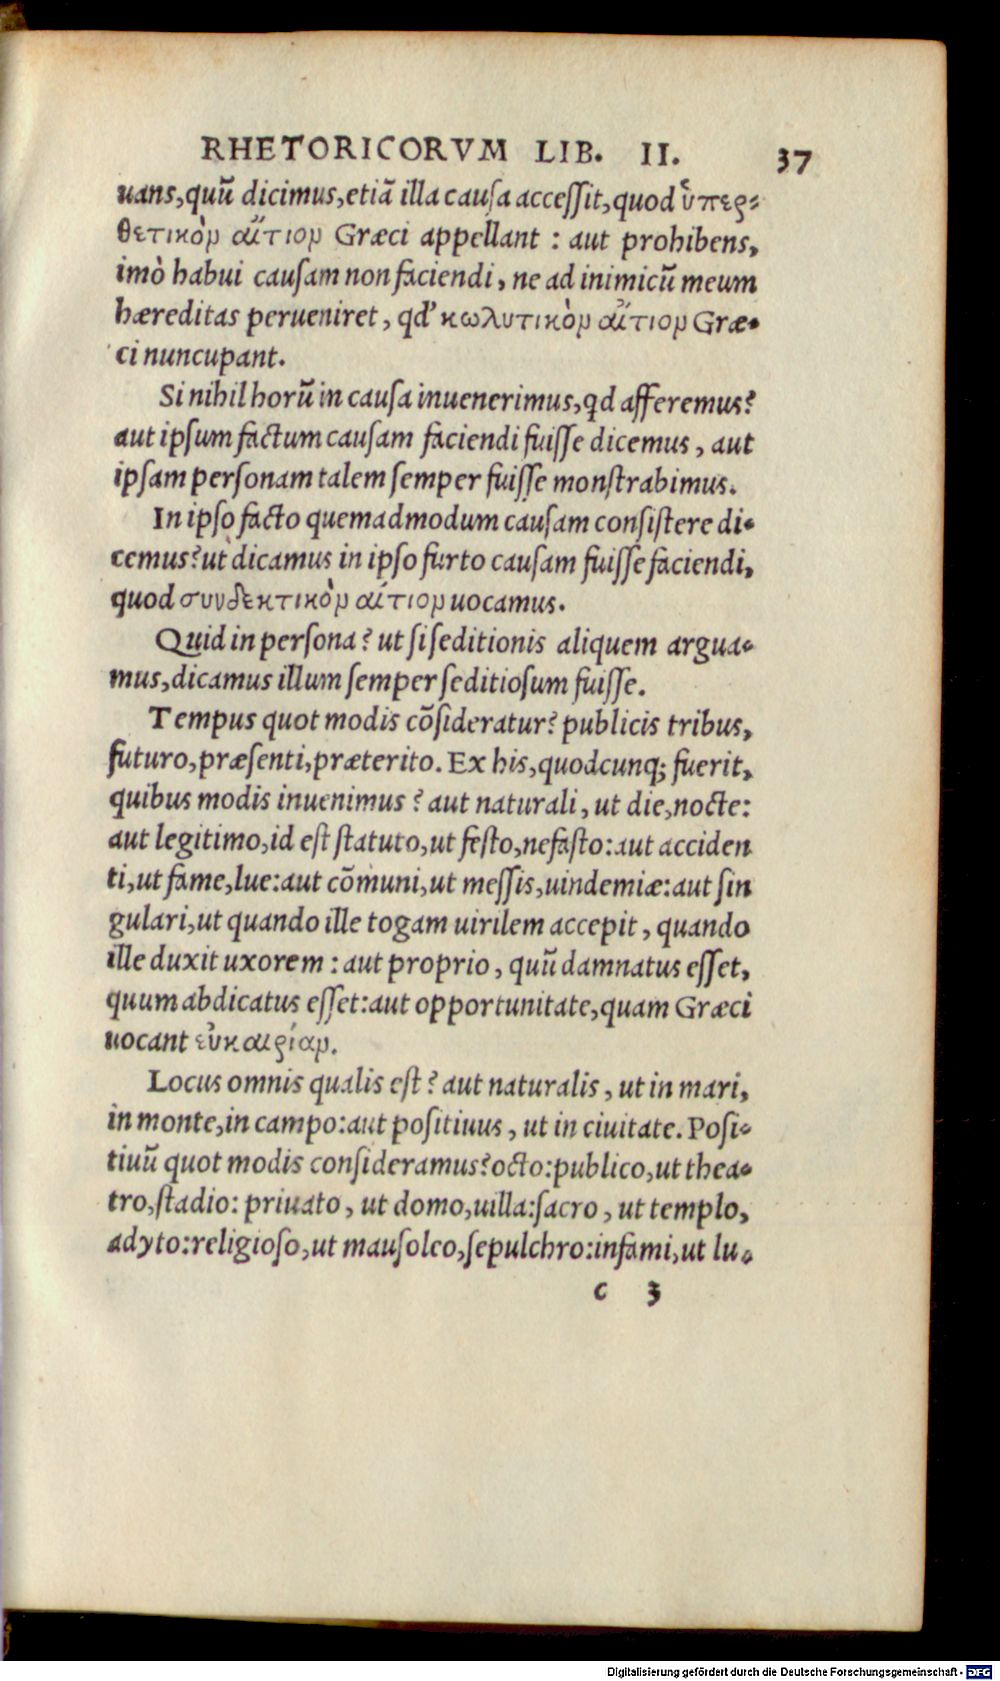 RHETORICORVM LIB. II. 37
uans,quū dicimus,etiā illa cauſa acceſſit,quod ὑπερ-
θετικὸν αἴτιον Græci appellant : aut prohibens,
imò habui cauſam non faciendi, ne ad inimicū meum
hæreditas perueniret, qd' κωλυτικὸν αἴτιον Græ-
ci nuncupant.
Si nihil horū in cauſa inuenerimus,qd afferemus?
aut ipſum factum cauſam faciendi fuiſſe dicemus, aut
ipſam perſonam talem ſemper fuiſſe monſtrabimus.
In ipſo facto quemadmodum cauſam conſiſtere di-
cemus? ut dicamus in ipſo furto cauſam fuiſſe faciendi,
quod συνδεκτικὸν αἴτιον uocamus.
Quid in perſona? ut ſi ſeditionis aliquem argua-
mus,dicamus illum ſemper ſeditioſum fuiſſe.
Tempus quot modis cōſideratur? publicis tribus,
futuro,præſenti,præterito. Ex his,quodcunq; fuerit,
quibus modis inuenimus ? aut naturali, ut die,nocte:
aut legitimo,id eſt ſtatuto,ut feſto,nefaſto: aut acciden
ti,ut fame,lue:aut cōmuni,ut meſſis,uindemiæ:aut ſin
gulari,ut quando ille togam uirilem accepit, quando
ille duxit uxorem : aut proprio, quū damnatus eſſet,
quum abdicatus eſſet:aut opportunitate,quam Græci
uocant εὐκαιρίαν.
Locus omnis qualis eſt? aut naturalis, ut in mari,
in monte,in campo:aut poſitiuus, ut in ciuitate. Poſi-
tiuū quot modis conſideramus? octo:publico,ut thea-
tro,ſtadio: priuato, ut domo,uilla:ſacro, ut templo,
adyto:religioſo,ut mauſoleo,ſepulchro:infami,ut lu-
c 3
Digitalisierung gefördert durch die Deutsche Forschungsgemeinschaft - DFG